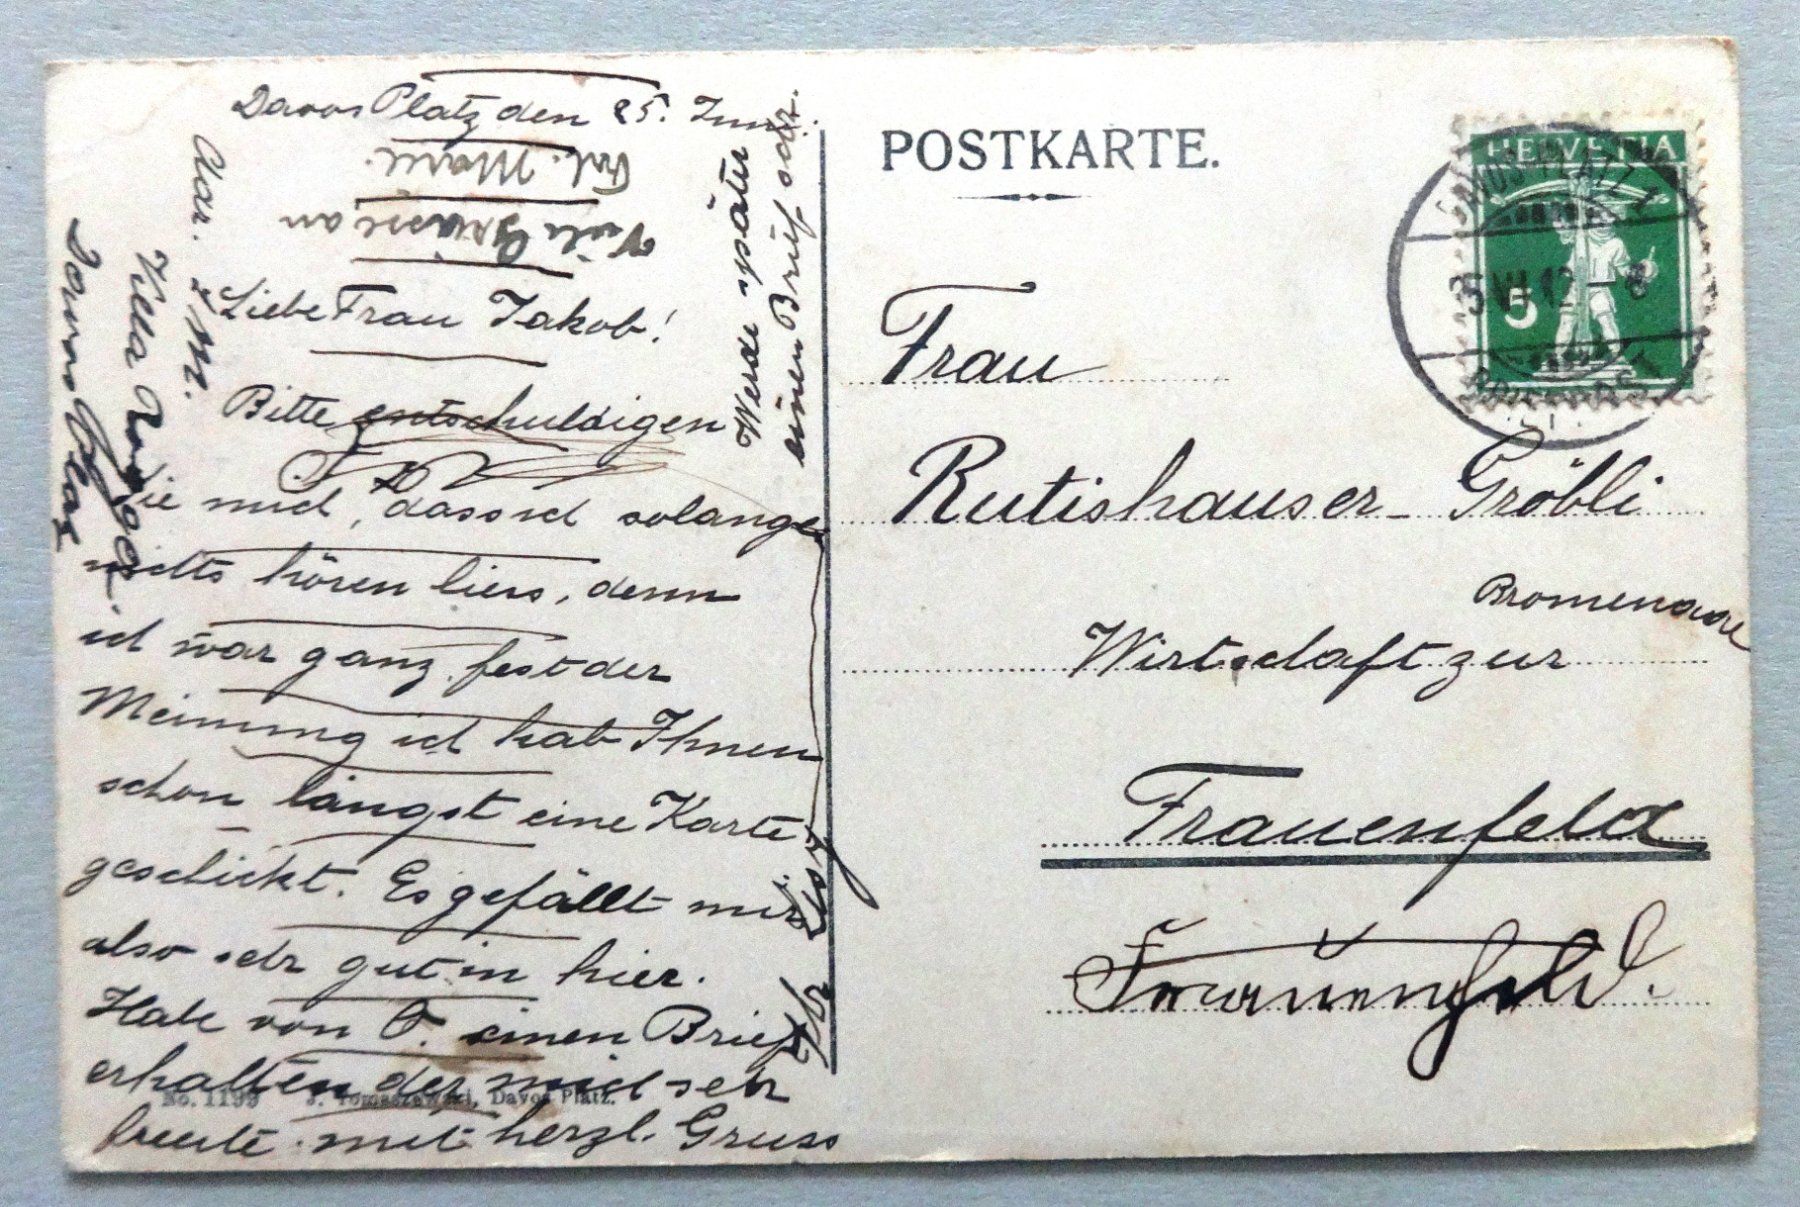 Davos Platz den 25. Juni.
Frl. Marie.
Viele Grüsse an
Liebe Frau Jakob!
Bitte entschuldigen
Sie mich, dass ich solange
nichts hören liess, denn
ich war ganz fest der
Meinung ich hab Ihnen
schon längst eine Karte
geschickt. Es gefällt mir
also sehr gut in hier.
Habe von O. einen Brief
erhalten der mich sehr
freute. mit herzl. Gruss
Werde später
einen Brief schr.
Adr. M.
Villa
Davos Platz
No. 1199 J. Tomaszewski, Davos Platz.
POSTKARTE.
HELVETIA
5
DAVOS-PLATZ 1
VI 12 8
Frau
Rutishauser-Gröbli
Promenade
Wirtschaft zur
Frauenfeld
Frauenfeld.